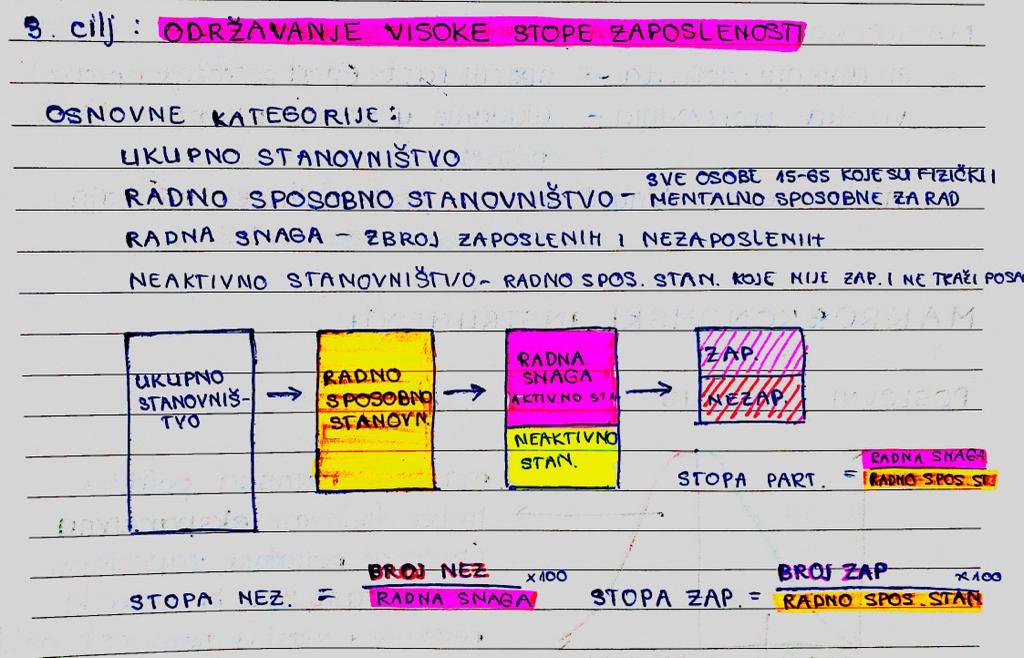 3. cilj : ODRŽAVANJE VISOKE STOPE ZAPOSLENOSTI
OSNOVNE KATEGORIJE:
UKUPNO STANOVNIŠTVO
RADNO SPOSOBNO STANOVNIŠTVO - SVE OSOBE 15-65 KOJE SU FIZIČKI I
MENTALNO SPOSOBNE ZA RAD
RADNA SNAGA - ZBROJ ZAPOSLENIH I NEZAPOSLENIH
NEAKTIVNO STANOVNIŠTVO - RADNO SPOS. STAN. KOJE NIJE ZAP. I NE TRAŽI POSA
UKUPNO
STANOVNIŠ-
TVO
→
RADNO
SPOSOBNO
STANOVN.
→
RADNA
SNAGA
AKTIVNO STA
NEAKTIVNO
STAN.
→
ZAP.
NEZAP.
STOPA PART. = RADNA SNAGA
RADNO SPOS. ST
STOPA NEZ. = BROJ NEZ x100
RADNA SNAGA
STOPA ZAP. = BROJ ZAP x100
RADNO SPOS. STAN